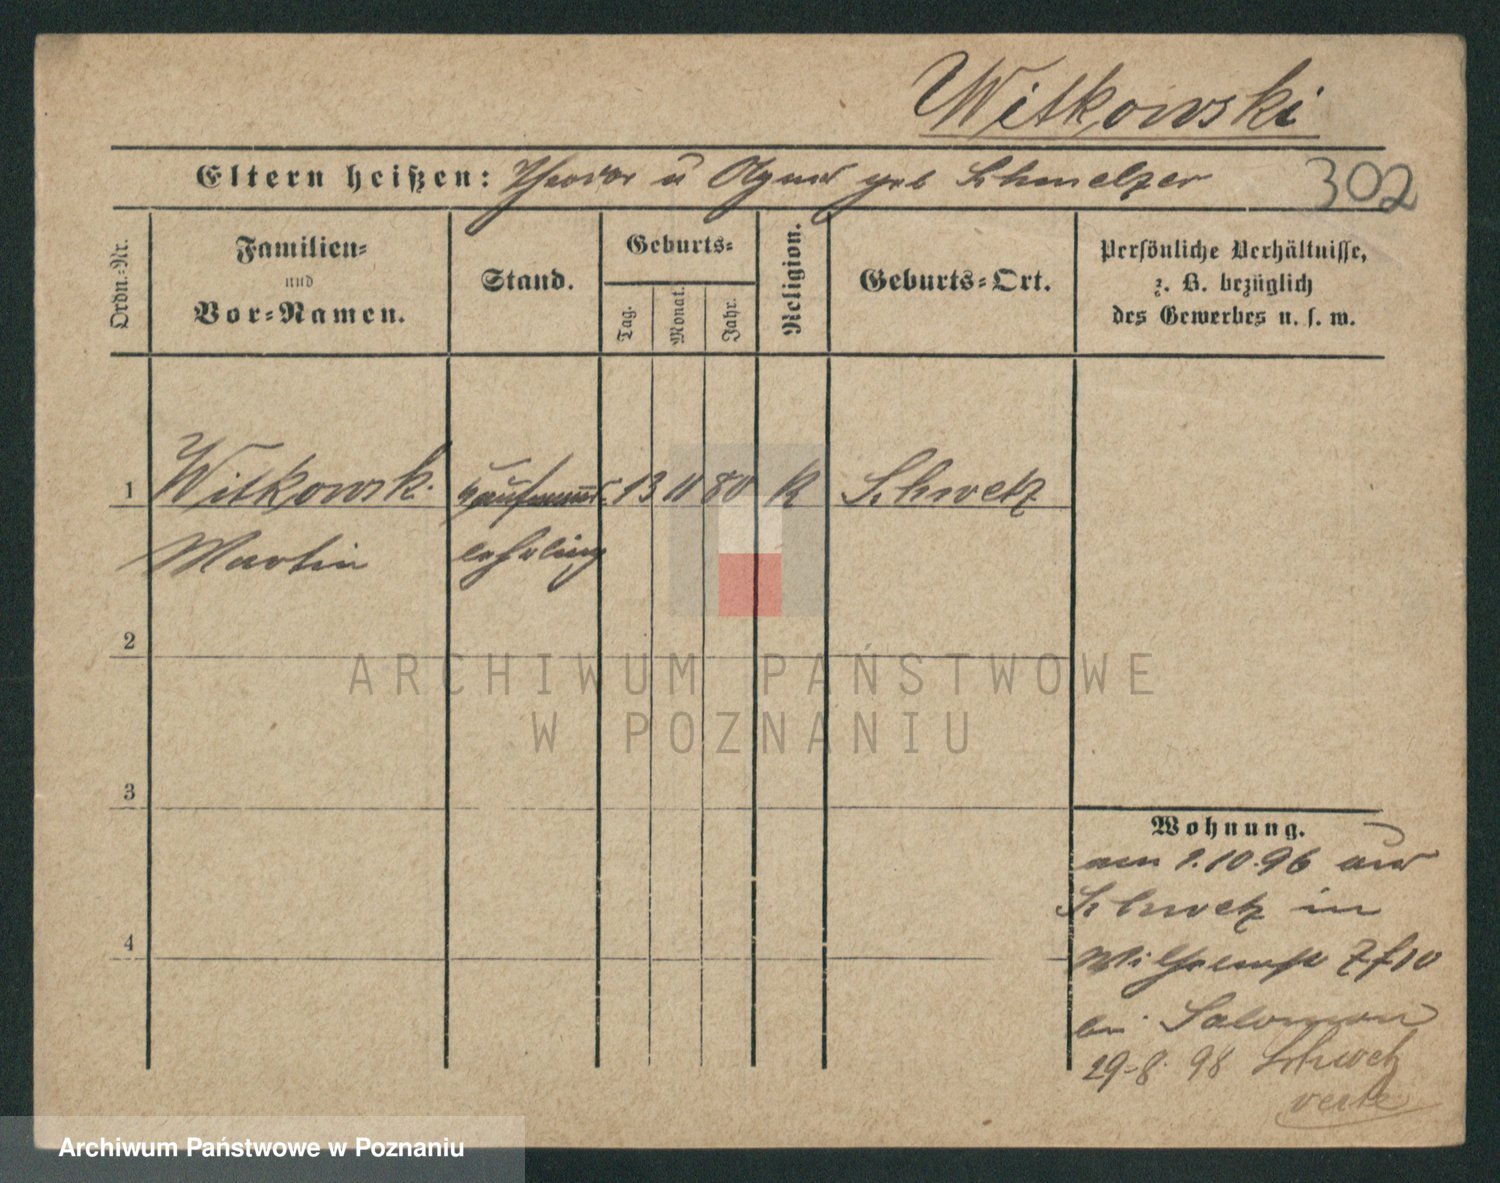 Witkowski
Eltern heißen: Theodor u geb Schmelzer 302
Ordn.-Nr.
Familien-
und
Vor-Namen.
Stand.
Geburts-
Tag.
Monat.
Jahr.
Religion.
Geburts-Ort.
Persönliche Verhältnisse,
z. B. bezüglich
des Gewerbes u. s. w.
1 Witkowsk. Kaufmanns 13 11 80 K Schwetz
Martin lehrling
2
ARCHIWUM PAŃSTWOWE
W POZNANIU
3
Wohnung.
am 1.10.96 aus
Schwetz in
4
Wilhelmst
bei Salomon
29-8. 98 Schwetz
verte
Archiwum Państwowe w Poznaniu